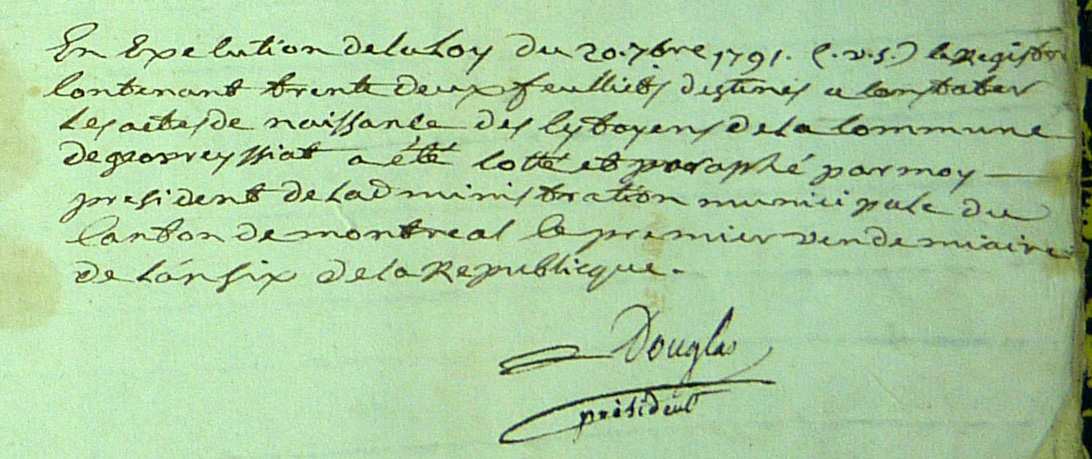 En Execution de la Loy du 20. 7bre 1791. (.v.s.) le Registre
Contenant trente deux feulliets destinés a Constater
Les actes de naissance des Cytoyens de la Commune
de geovreyssiat a été Cotté et paraphé par moy
president de Ladministration municipale du
Canton de montreal le premier vendemiaire
de L'an six de la Republicque.
Douglas
président